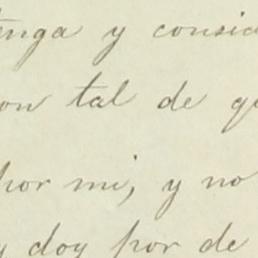 tenga y consid
on tal de qu
por mi, y no
y doy por de